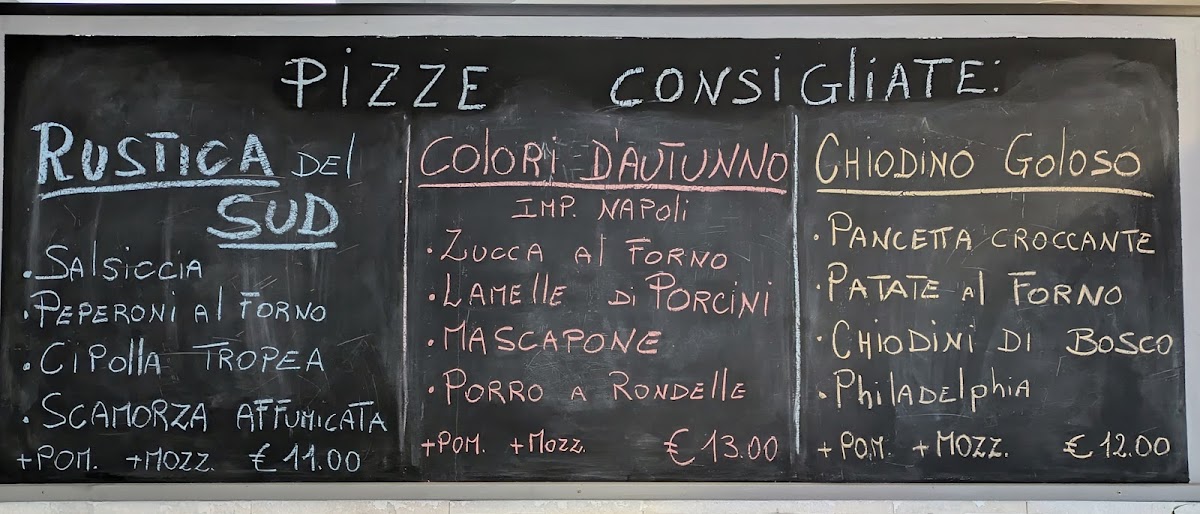 PIZZE CONSIGLIATE:
RUSTICA DEL
SUD
· SALSICCIA
· PEPERONI AL FORNO
· CIPOLLA TROPEA
· SCAMORZA AFFUMICATA
+POM. +MOZZ. € 11.00
COLORI D'AUTUNNO
IMP. NAPOLI
· ZUCCA AL FORNO
· LAMELLE DI PORCINI
· MASCAPONE
· PORRO A RONDELLE
+POM. +MOZZ. € 13.00
CHIODINO GOLOSO
· PANCETTA CROCCANTE
· PATATE AL FORNO
· CHIODINI DI BOSCO
· PHILADELPHIA
+ POM. + MOZZ. € 12.00